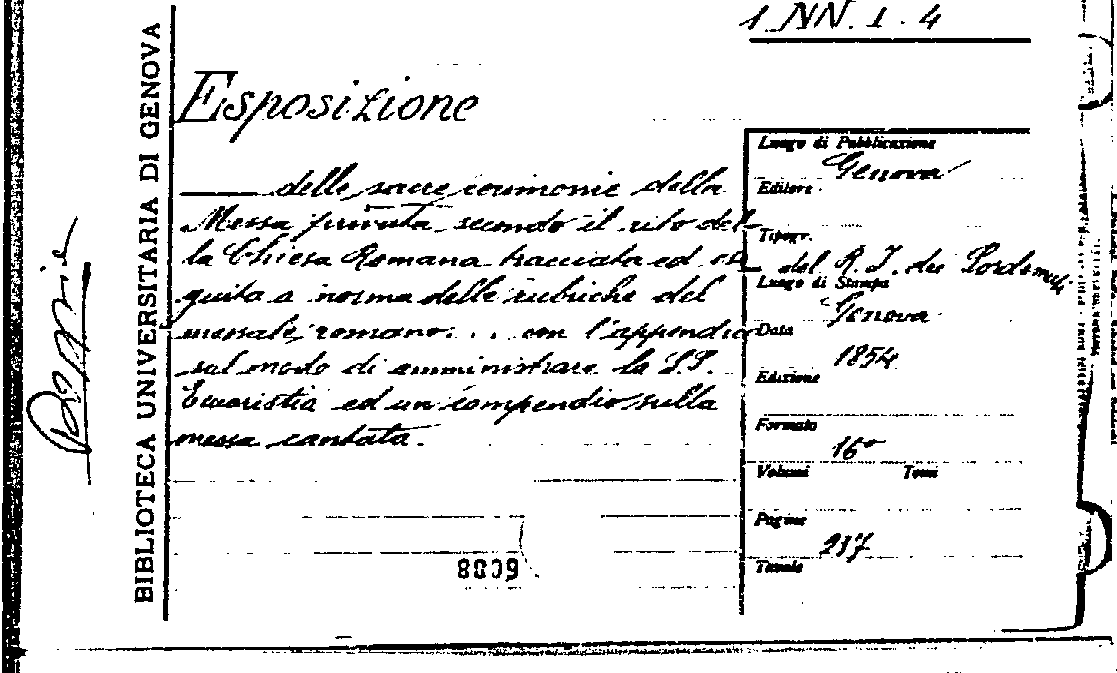 1 NN. I. 4
BIBLIOTECA UNIVERSITARIA DI GENOVA
Esposizione
delle sacre cerimonie della
Messa privata secondo il rito del-
la Chiesa Romana tracciata ed
a norma delle rubriche del
messale romano... con l'appendice
sul modo di amministrare la SS.
Eucaristia ed un compendio sulla
messa cantata.
8009
Luogo di Pubblicazione
Genova
Editore
Tipogr.
del R. I. dei Sordomuti
Luogo di Stampa
Genova
Data
1854
Edizione
Formato
16°
Volumi Tomi
Pagine
217
Tavole